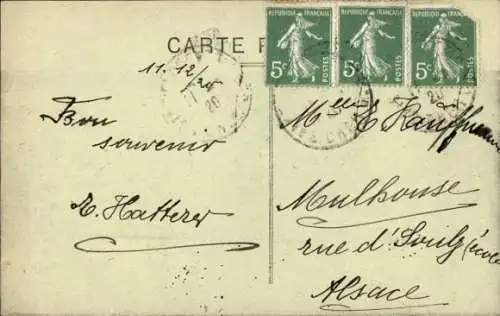 CARTE P
RÉPUBLIQUE FRANÇAISE
5c
POSTES
RÉPUBLIQUE FRANÇAISE
5c
POSTES
RÉPUBLIQUE FRANÇAISE
5c
POSTES
11. 12/20
20
Bon
souvenir
E. Hatterer
Melle E
Mulhouse
rue d'Soultz (école
Alsace